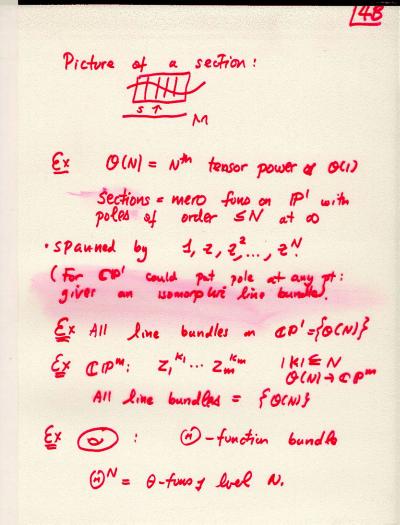 14B
Picture of a section:
s ↑
M
Ex O(N) = Nth tensor power of O(1)
Sections = mero funs on P¹ with
poles of order ≤ N at ∞
• spanned by 1, z, z², ..., z^N.
(For CP¹ could put pole at any pt:
gives an isomorphic line bundle.
Ex All line bundles on CP¹ = {O(N)}
Ex CP^m: z₁^k₁ ... z_m^k_m |k| ≤ N
O(N) → CP^m
All line bundles = {O(N)}
Ex : Θ-function bundle
Θ^N = θ-funs of level N.